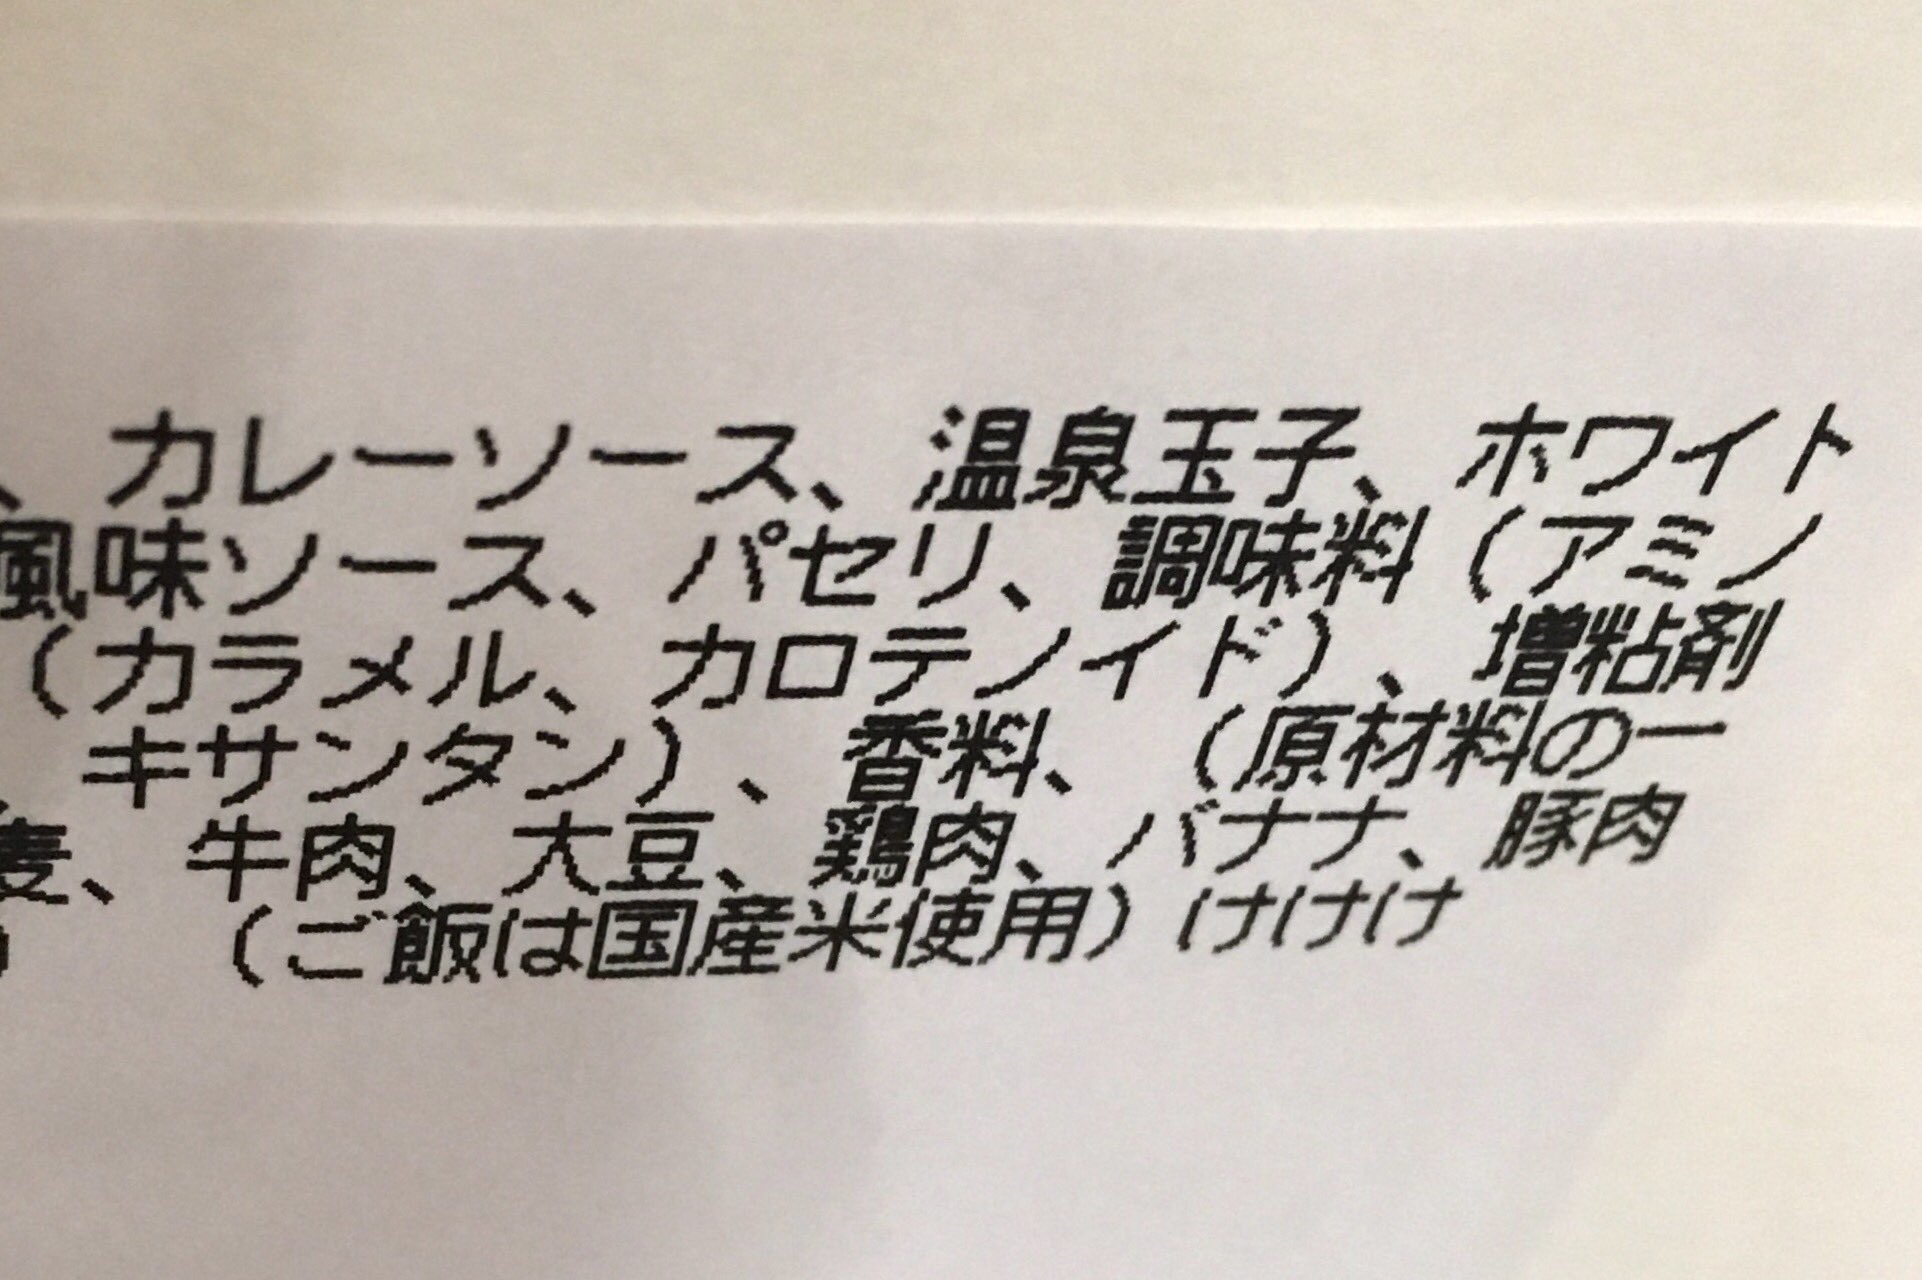 、カレーソース、温泉玉子、ホワイト
風味ソース、パセリ、調味料（アミノ
（カラメル、カロテノイド）、増粘剤
、キサンタン）、香料、（原材料の一
麦、牛肉、大豆、鶏肉、バナナ、豚肉
）（ご飯は国産米使用）けけけ